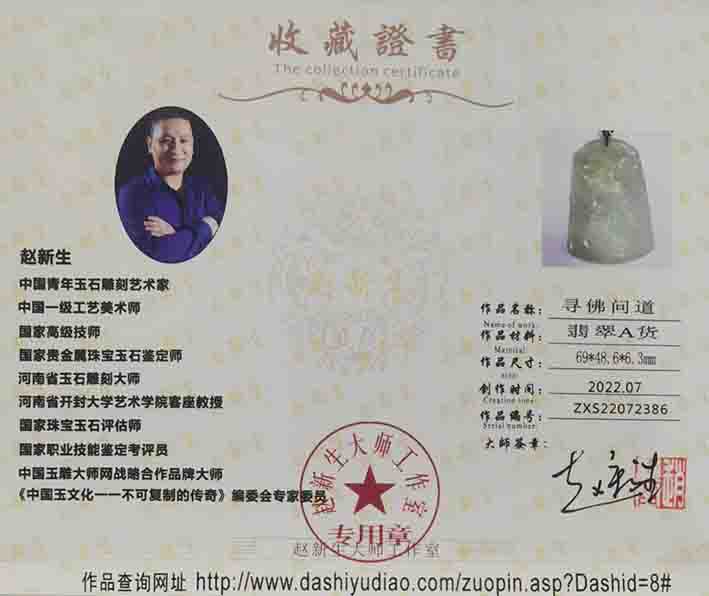 收藏證書
The collection certificate
赵新生
中国青年玉石雕刻艺术家
中国一级工艺美术师
国家高级技师
国家贵金属珠宝玉石鉴定师
河南省玉石雕刻大师
河南省开封大学艺术学院客座教授
国家珠宝玉石评估师
国家职业技能鉴定考评员
中国玉雕大师网战略合作品牌大师
《中国玉文化一一不可复制的传奇》编委会专家委员
作品名称: 寻佛问道
Name of work:
作品材料: 翡翠A货
Material:
作品尺寸: 69*48.6*6.3mm
size:
创作时间: 2022.07
Creation time:
作品编号: ZXS22072386
Serial number:
大师签章:
赵新生大师工作室
专用章
赵新生大师工作室
作品查询网址 http://www.dashiyudiao.com/zuopin.asp?Dashid=8#